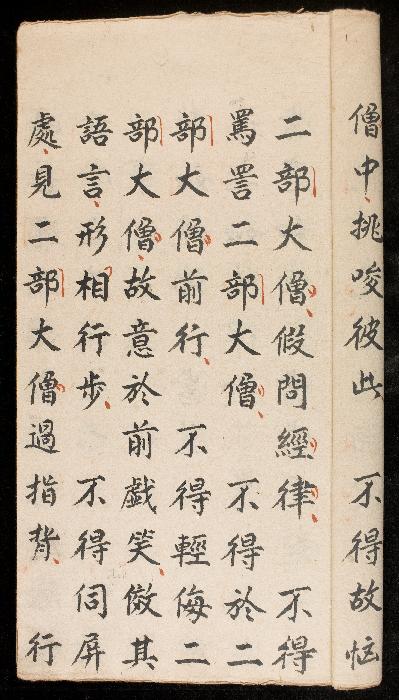 僧中挑唆彼此 不得故惱
二部大僧假問經律 不得
罵詈二部大僧 不得於二
部大僧前行 不得輕侮二
部大僧故意於前戲笑倣其
語言形相行步 不得伺屏
處見二部大僧過指背 行